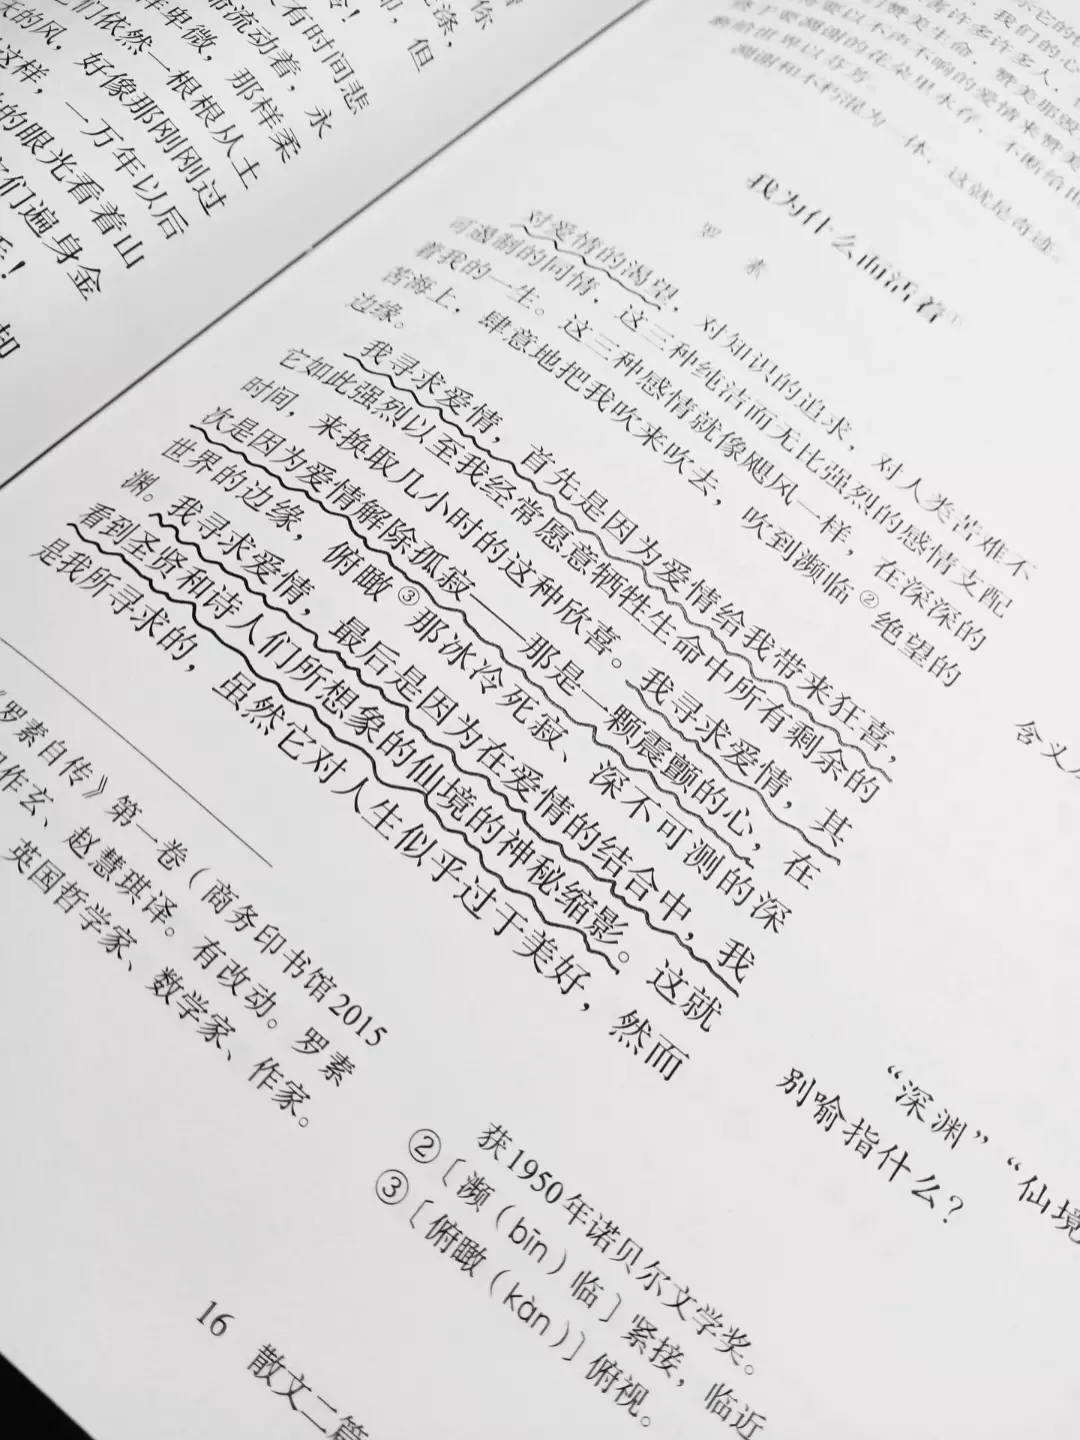 你
涤，
但
有时间悲
流动着，永
样卑微，那样柔
们依然一根根从土
的风，好像那刚刚过
这样，一万年以后
的眼光看着山
们遍身金
却
害许多许多人，
们赞美生命，赞美那毁
要以不声不响的爱情来赞美
要凋谢的花朵里永存，不断给世
界以芬芳。
凋谢和不朽混为一体，这就是奇迹。
我为什么而活着①
罗 素
对爱情的渴望，对知识的追求，对人类苦难不
可遏制的同情，这三种纯洁而无比强烈的感情支配
着我的一生。这三种感情就像飓风一样，在深深的
苦海上，肆意地把我吹来吹去，吹到濒临②绝望的
边缘。
我寻求爱情，首先是因为爱情给我带来狂喜，
它如此强烈以至我经常愿意牺牲生命中所有剩余的
时间，来换取几小时的这种欣喜。我寻求爱情，其
次是因为爱情解除孤寂——那是一颗震颤的心，在
世界的边缘，俯瞰③那冰冷死寂、深不可测的深
渊。我寻求爱情，最后是因为在爱情的结合中，我
看到圣贤和诗人们所想象的仙境的神秘缩影。这就
是我所寻求的，虽然它对人生似乎过于美好，然而
含义
“深渊”“仙境
别喻指什么？
《罗素自传》第一卷（商务印书馆2015
作玄、赵慧琪译。有改动。罗素
英国哲学家、数学家、作家。
获1950年诺贝尔文学奖。
②〔濒（bīn）临〕紧接，临近
③〔俯瞰（kàn）〕俯视。
16 散文二篇